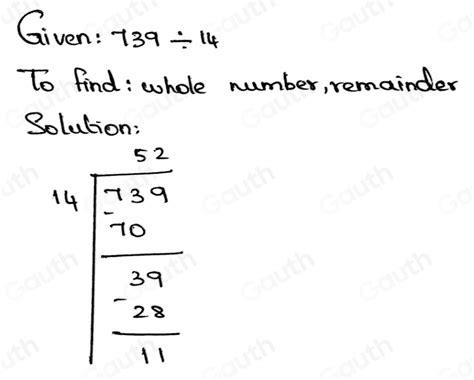 Given: 739 ÷ 14
To find: whole number, remainder
Solution:
52
14 739
- 70
39
- 28
11